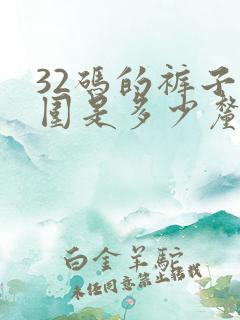 32码的裤子
围是多少釐
白金羊駝
未经同意禁止转载